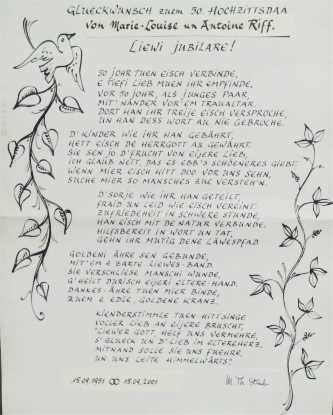 GLUECKWUNSCH zuem 50. HOCHZITTSDAA
Von Marie-Louise un Antoine Riff.
LIEWI JUBILARE!
50 JOHR TUEN EISCH VERBINDE,
E TIEFI LIEB MUEN IHR EMPFINDE,
VOR 50 JOHR, ALS JUNGES PAAR,
MIT'NANDER VOR'EM TRAUALTAR,
DORT HAN IHR TREIJE EISCH VERSPROCHE,
UN HAN DESS WORT AU NIE GEBROCHE.
D'KINDER WIE IHR HAN GEBÄHRT,
HETT EISCH DE HERRGOTT AU GEWÄHRT.
SIE SEN JO D'FRUCHT VON EIJERE LIEB,
ICH GLAUB NETT, DAS ES EBB'S SCHÖNERES GIEBT.
WENN MIER EISCH HITT DOO VOR UNS SEHN,
SUCHE MIER SO MANSCHES ZUE VERSTEH'N.
D'SORJE WIE IHR HAN GETEILT,
FRAID UN LEID WIE EISCH VEREINT.
ZUFRIEDEHEIT IN SCHWERE STUNDE,
HAN EISCH MIT DE NATUR VERBUNDE.
HILFSBEREIT IN WORT UN TAT,
GEHN IHR MUTIG DENE LÄWESPFAD.
GOLDENI ÄHRE SEN GEBUNDE,
MIT'EM E ZARTE LIEWES-BAND,
SIE VERSCHLIESE MANSCHI WUNDE,
G'HEILT DURISCH EIJERI ELTERE-HAND.
DANKES-ÄHRE TUEN MIER BINDE,
ZUEM E EDLE, GOLDENE KRANZ.
KIENDERSTIMMLE TUEN HITT SINGE
VOLLER LIEB AN EIJERE BRUSCHT,
"LIEWER GOTT, HELF UNS VERMEHRE,
S'GLUECK UN D'LIEB IM ELTEREHERZ,
MITNAND SOLLE SIE UNS FUEHRE,
UN UNS LEITE HIMMELWÄRTS."
15.09.1951 ⚭ 15.09.2001
M. Th.